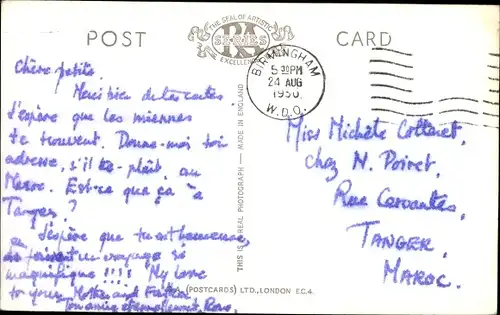 POST
THE SEAL OF ARTISTIC
RA
SERIES
EXCELLENCE
CARD
BIRMINGHAM
5 30 PM
24 AUG
1950
W.D.O.
Chère petite,
Merci bien de tes cartes.
J'espère que les miennes
te trouvent. Donne-moi ton
adresse, s'il te-plaît, au
Maroc. Est-ce que ça "a
Tanger?
J'espère que tu es heureuse,
en faisant un voyage si
magnifique!!!! My love
to your Mother and Father.
Ton amie
THIS IS A REAL PHOTOGRAPH — MADE IN ENGLAND
Miss Michèle Cotteret,
chez N. Poiret,
Rue Cervantes,
TANGER,
MAROC.
(POSTCARDS) LTD., LONDON E.C.4.